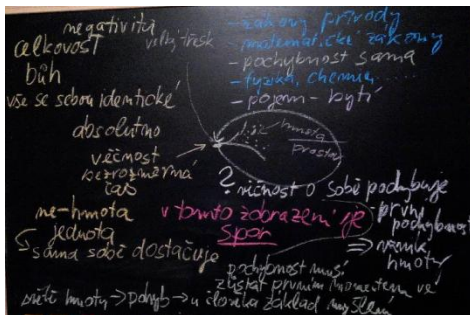 negativita
celkovost
bůh
vše se sebou identické
absolutno
věčnost
bezrozměrná
čas
ne-hmota
jednota
sama sobě dostačuje
velký třesk
- zákony přírody
matematické zákony
- pochybnost sama
- fyzika, chemie.....
- pojem - bytí
hmota
prostor
? věčnost o sobě pochybuje
v tomto zobrazení je
spor
první
pochybnost
⇒ vznik
hmoty
pochybnost musí
zůstat prvním momentem ve
hmoty → pohyb → u člověka základ myšlení